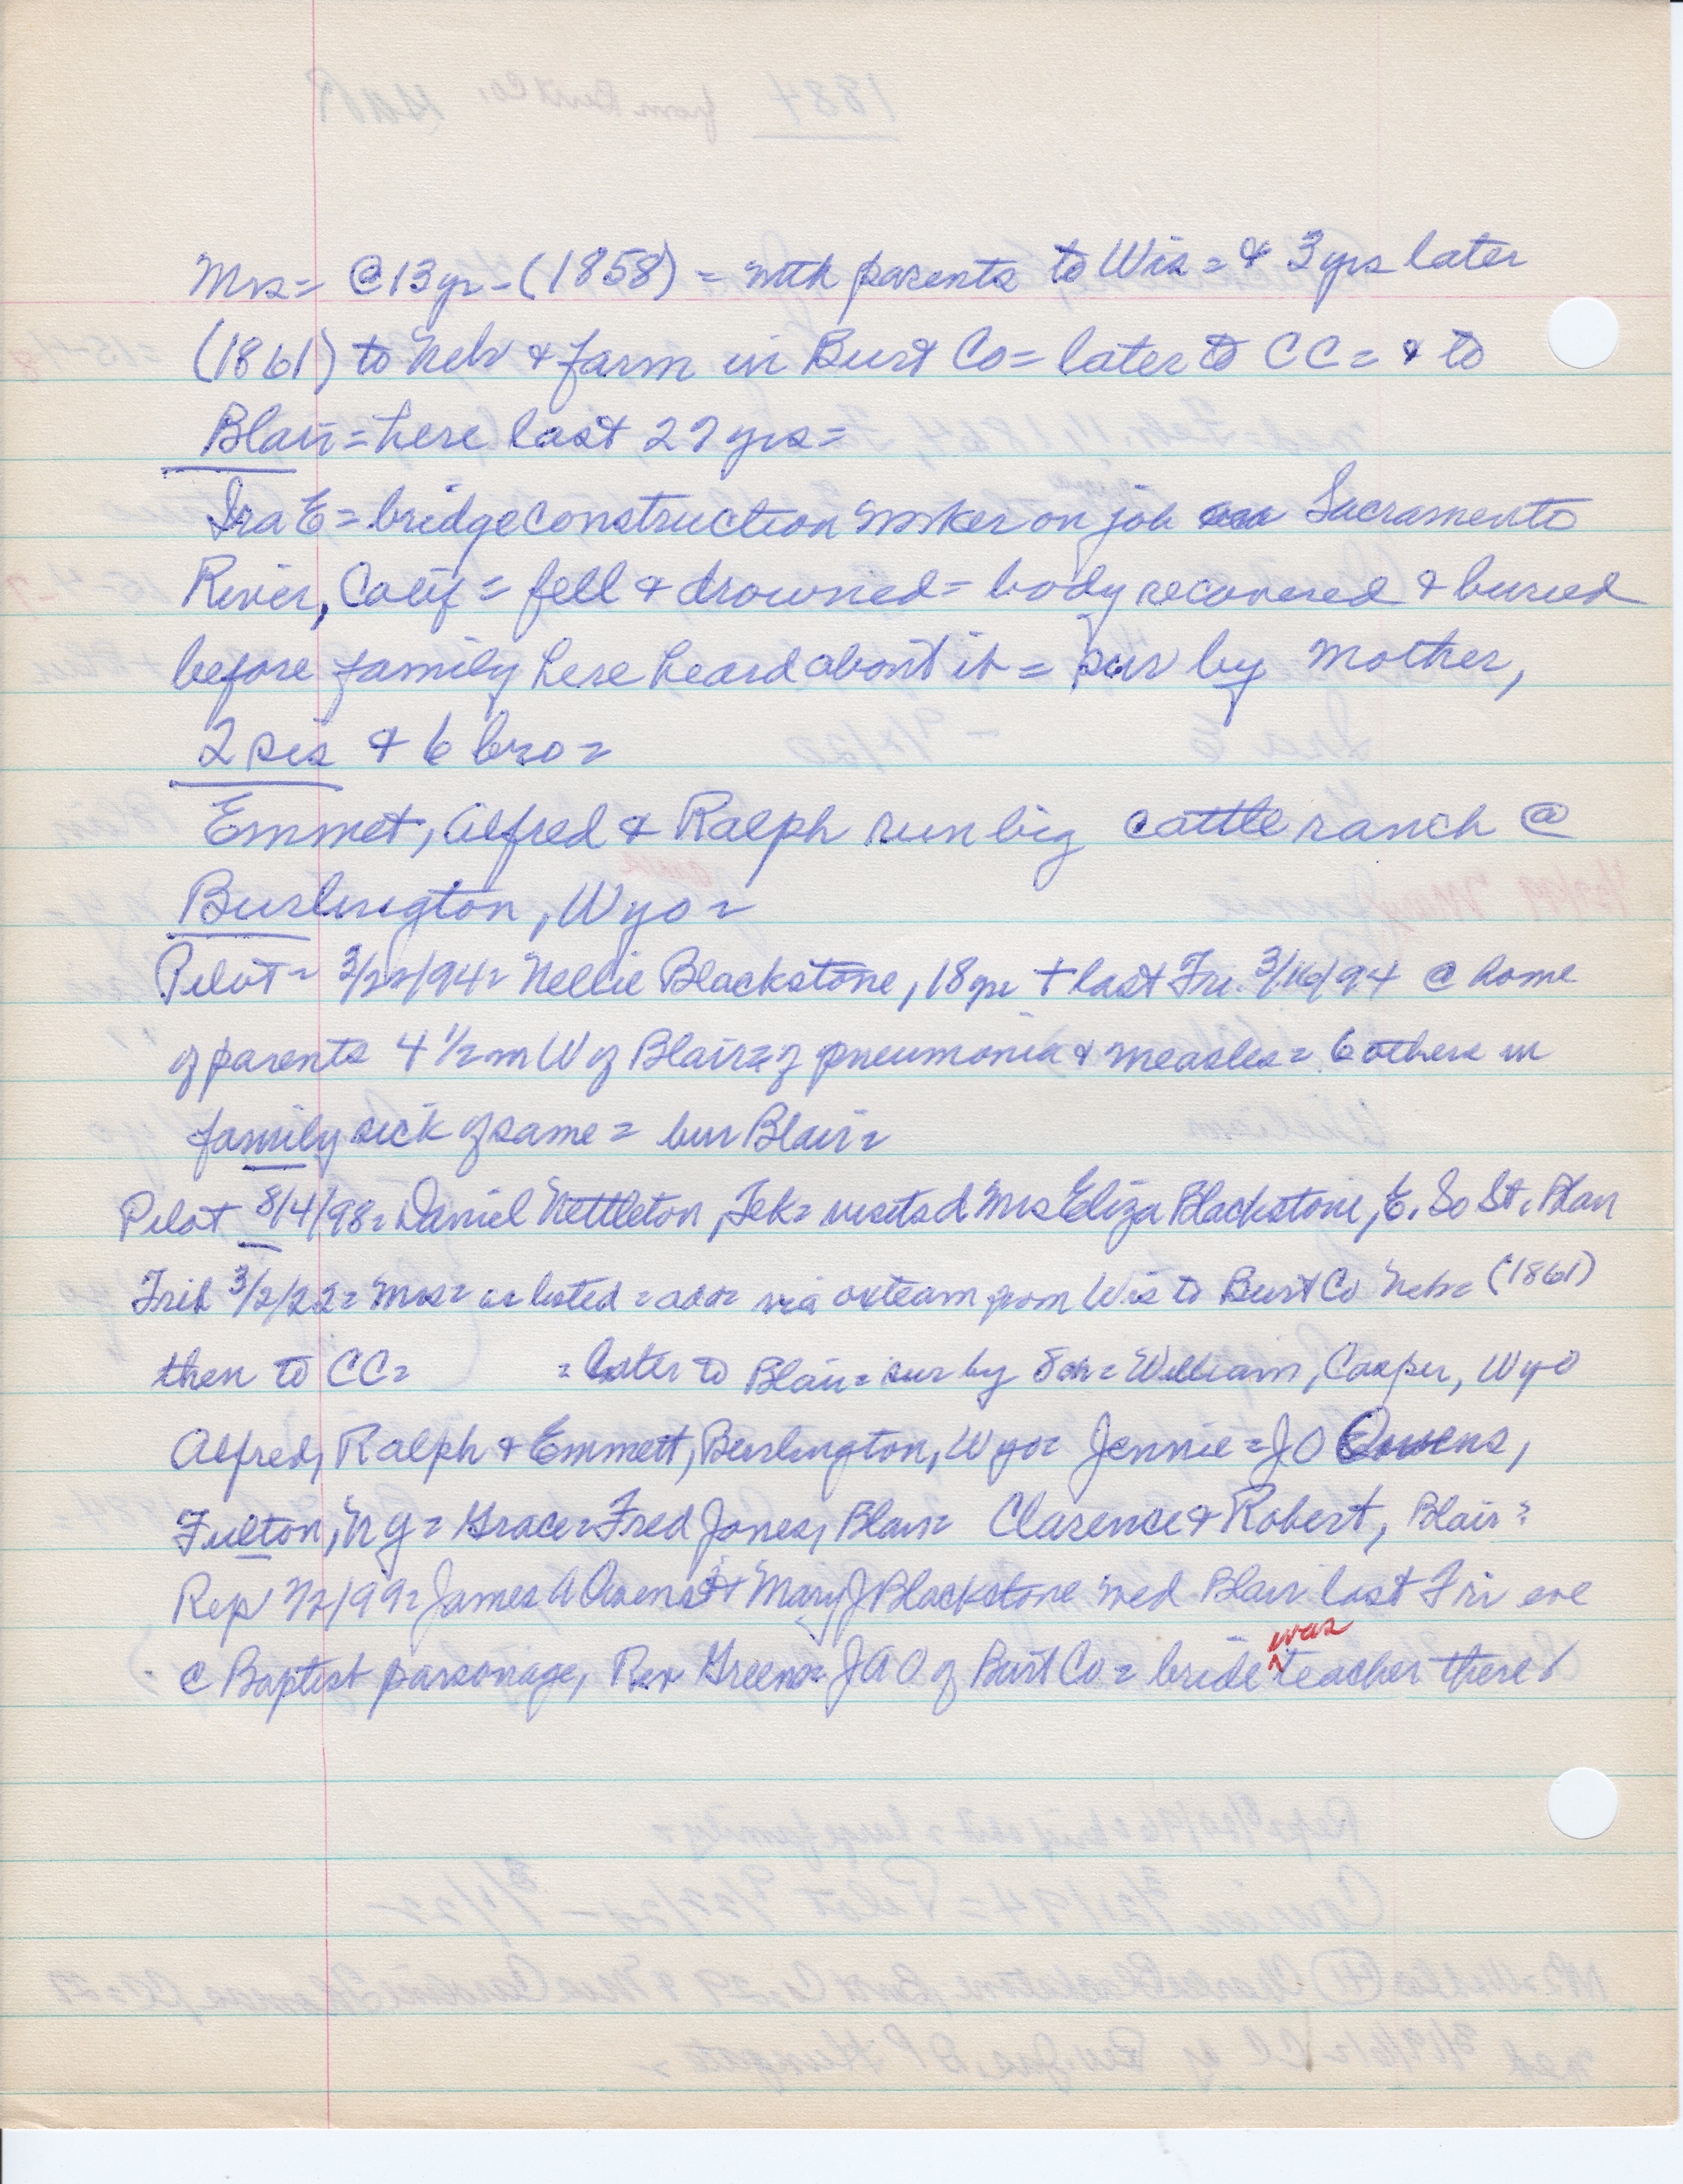 Mrs = @ 13 yr - (1858) = with parents to Wis = & 3 yrs later
(1861) to Neb & farm in Burt Co = later to CC = & to
Blair = here last 27 yrs =
Ira E = bridge construction worker on job Sacramento
River, Calif = fell & drowned = body recovered & buried
before family here heard about it = sur by mother,
2 sis & 6 bro =
Emmet, Alfred & Ralph run big cattle ranch @
Burlington, Wyo =
Pilot = 3/22/94 = Nellie Blackstone, 18 yr + last Fri. 3/16/94 @ home
of parents 4 1/2 m W of Blair = of pneumonia & measles = 6 others in
family sick of same = bur Blair =
Pilot 8/4/98 = Daniel Nettleton, Tek = visited Mrs Eliza Blackstone, E. So St. Blair
Trib 3/2/22 = Mrs = as listed = via oxteam from Wis to Burt Co Neb = (1861)
then to CC = = later to Blair = sur by 8 ch = William, Casper, Wyo
Alfred, Ralph & Emmett, Burlington, Wyo = Jennie = J O Owens,
Fulton, NY = Grace = Fred Jones, Blair = Clarence & Robert, Blair =
Rep 1/2/99 = James A Owens & Mary J Blackstone wed Blair last Fri eve
@ Baptist parsonage, Rev Green = J A O of Burt Co = bride was teacher there